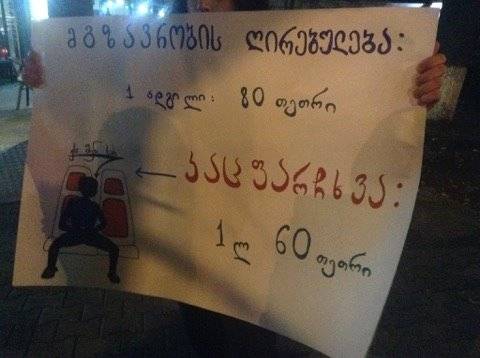 მგზავრობის ღირებულება:
1 ადგილი: 80 თეთრი
კაცფარჩხვა:
1ლ 60 თეთრი